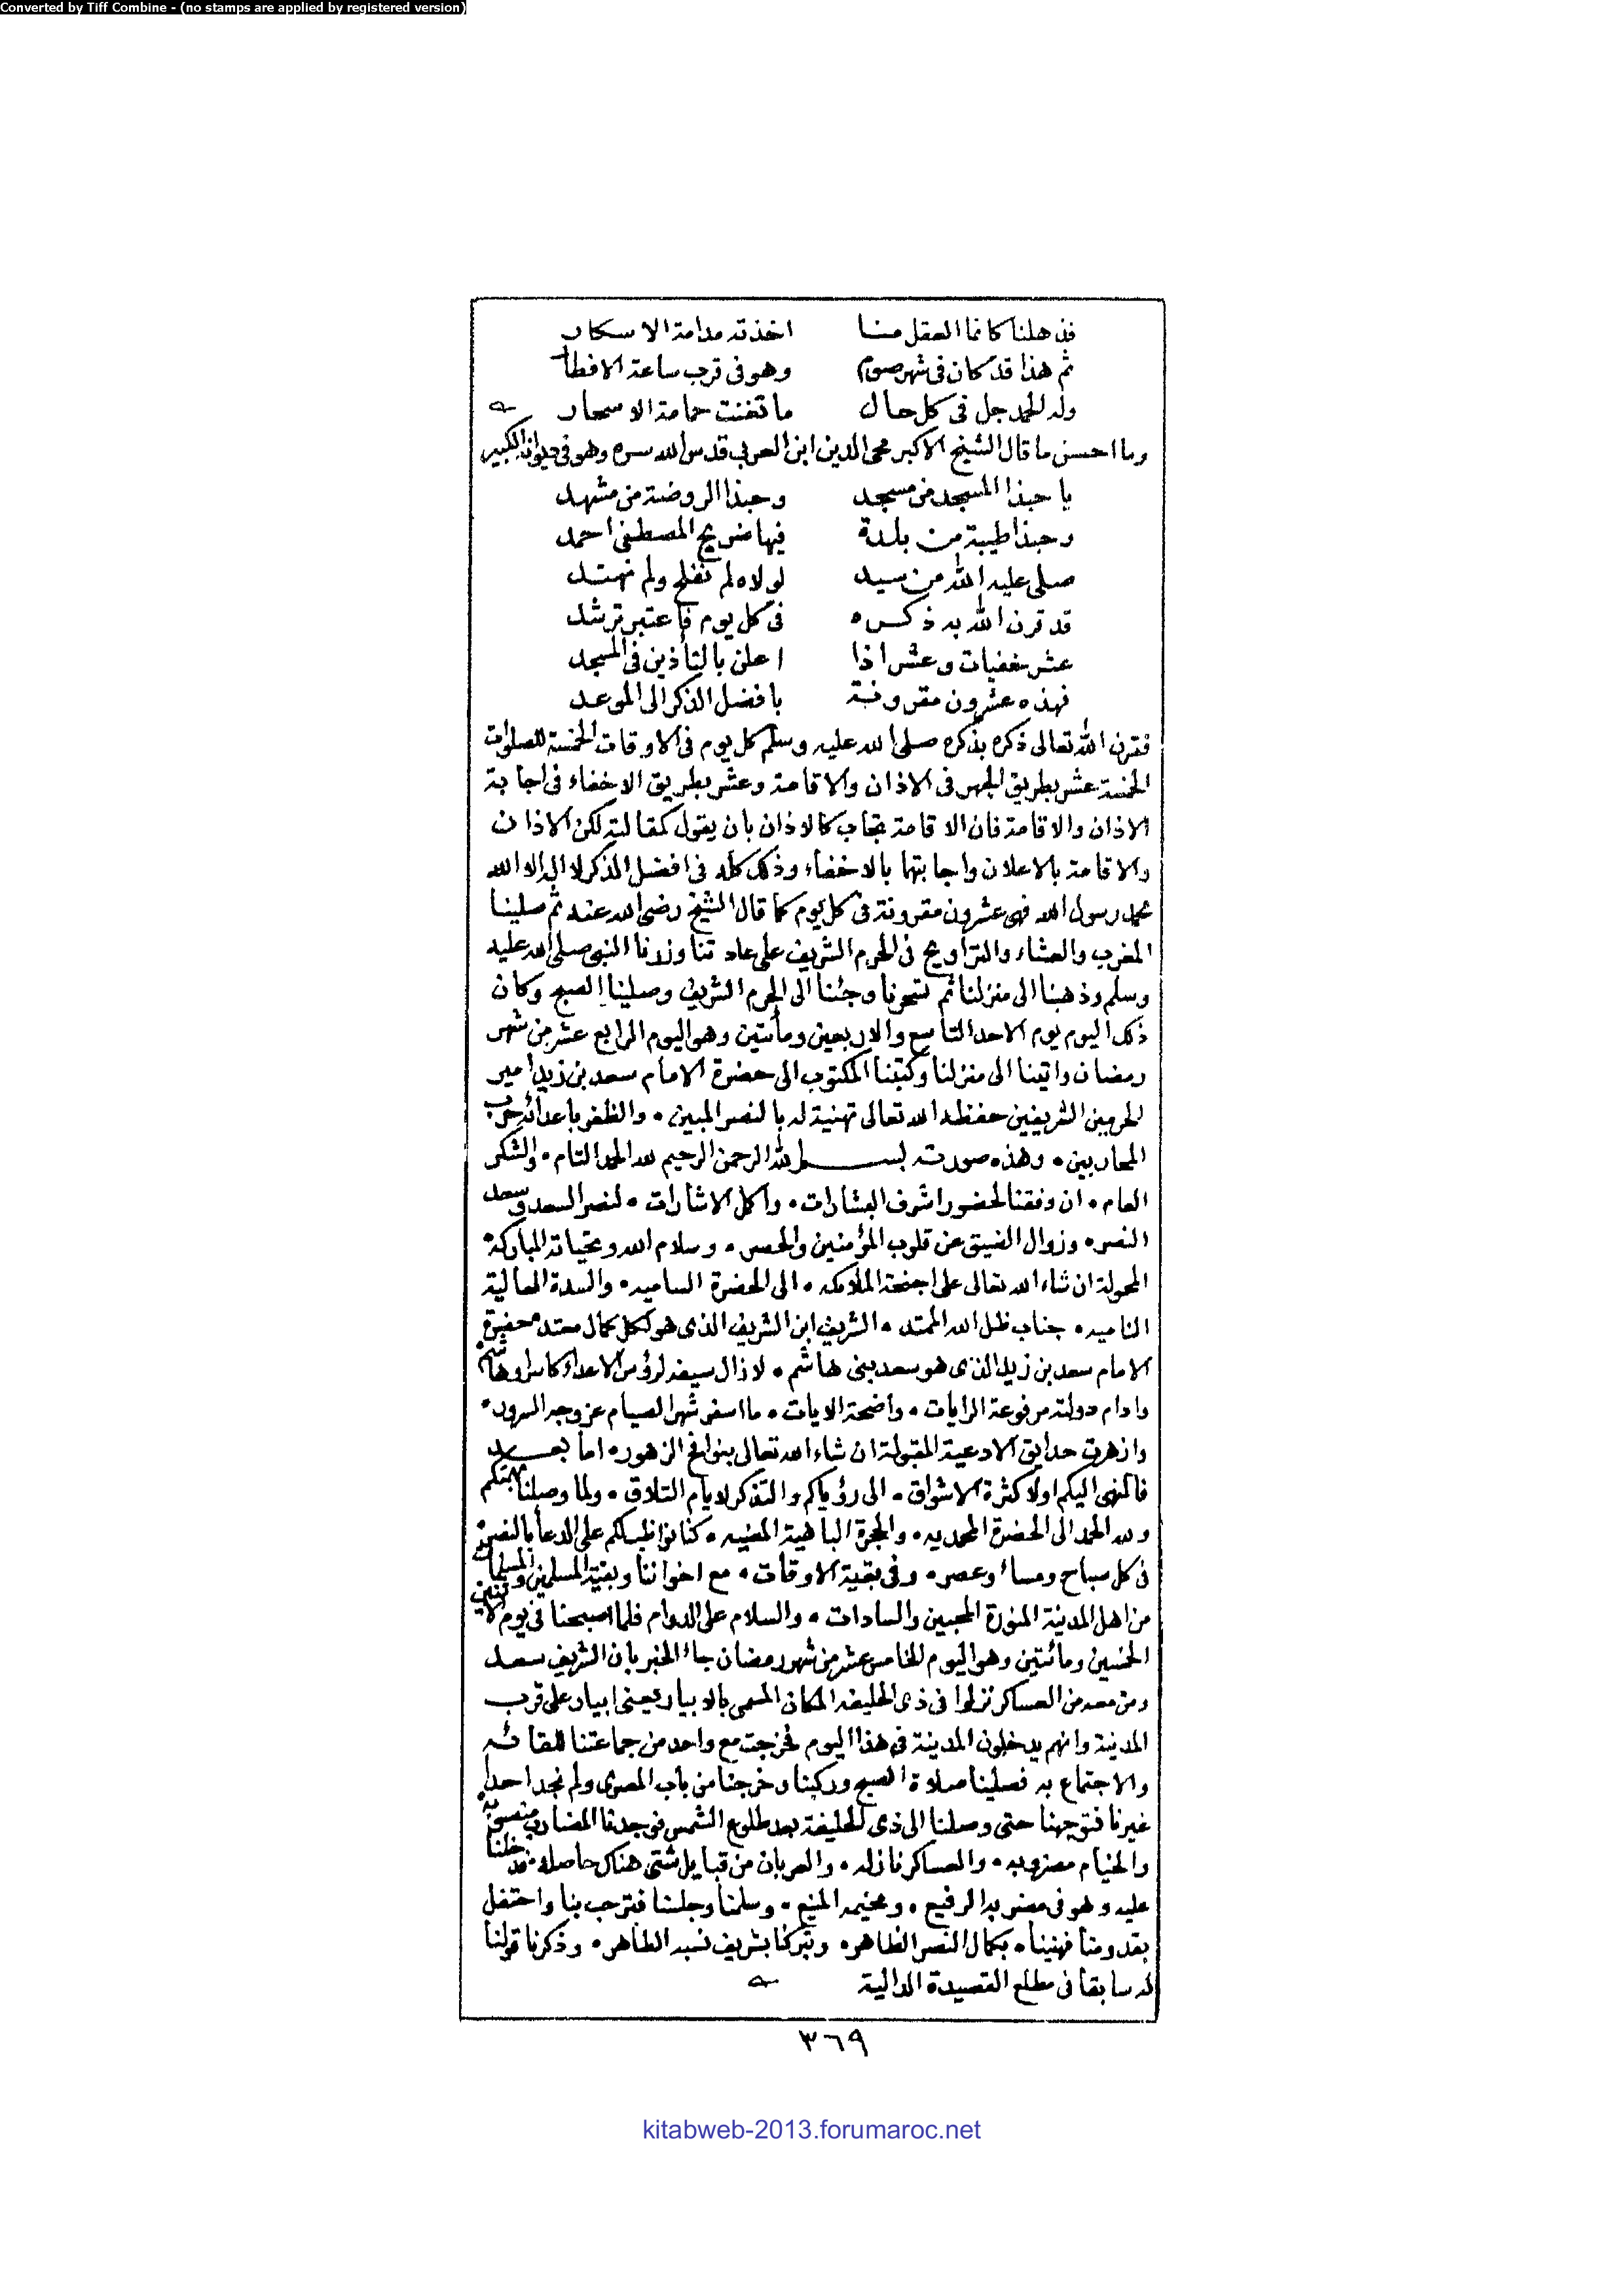 Converted by Tiff Combine - (no stamps are applied by registered version)
فذهلنا كانما العقل منا اخذته مدامة الاسكار
ثم هذا قد كان فى شهر صوم وهو فى قرب ساعة الافطار
وله الحمد جل فى كل حال ما تغنت حمامة الاسحار
وما احسن ما قال الشيخ الاكبر محى الدين ابن العربى قدس الله سره وهو فى ديوانه الكبير
يا حبذا المسجد من مسجد وحبذا الروضة من مشهد
وحبذا طيبة من بلدة فيها ضريح المصطفى احمد
صلى عليه الله من سيد لولاه لم نفلح ولم نهتد
قد قرن الله به ذكره فى كل يوم فاعتبر ترشد
عشر خفيات وعشر اذا اعلن بالتأذين فى المسجد
فهذه عشرون مقرونة بافضل الذكر الى الموعد
فقرن الله تعالى ذكره بذكره صلى الله عليه وسلم كل يوم فى الاوقات الخمسة للصلوات
الخمسة عشر بطريق الجهر فى الاذان والاقامة وعشر بطريق الاخفاء فى اجابة
الاذان والاقامة فان الاقامة تجاب كالاذان بان يقول كمقالته لكن الاذان
والاقامة بالاعلان واجابتها بالاخفاء وذلك كله فى افضل الذكر لا اله الا الله
محمد رسول الله فهى عشرون مقرونة فى كل يوم كما قال الشيخ رضى الله عنه ثم صلينا
المغرب والعشاء والتراويح فى الحرم الشريف على عادتنا وزرنا النبى صلى الله عليه
وسلم وذهبنا الى منزلنا ثم تسحرنا وجئنا الى الحرم الشريف وصلينا الصبح وكان
ذلك اليوم يوم الاحد التاسع والاربعين ومأتين وهو اليوم الرابع عشر من شهر
رمضان واتينا الى منزلنا وكتبنا المكتوب الى حضرة الامام سعد بن زيد امير
الحرمين الشريفين حفظه الله تعالى تهنية له بالنصر المبين، والظفر باعدائه حرب
المحاربين، وهذه صورته بسم الله الرحمن الرحيم لله الحمد التام، والشكر
العام، ان وفقنا لحضور اشرف البشارات، واكمل الاشارات، لنصر السعد وسعد
النصر، وزوال الضيق عن قلوب المؤمنين والحصر، وسلام الله وتحياته المباركة
المحمولة ان شاء الله تعالى على اجنحة الملائكه، الى الحضرة الساميه، والسدة العالية
الناميه، جناب ظل الله الممتد، الشريف ابن الشريف الذى هو لكل كمال معتد حضرة
الامام سعد بن زيد الذى هو سعد بنى هاشم، لا زال سيفه لرؤس الاعداء كاسرا وهاشم،
وادام دولته مرفوعة الرايات، واضحة الايات، ما اسفر شهر الصيام عن وجه السرور،
وازهرت حدايق الادعية المقبولة ان شاء الله تعالى بنوافح الزهور، اما بعد
فالمنهى اليكم اولا كثرة الاشواق، الى رؤياكم والتذكر لايام التلاق، ولما وصلنا بهمتكم
ولله الحمد الى الحضرة المحمديه، والحجرة الباهية المضيه، كنا نواظب لكم على الدعا بالنصر،
فى كل صباح ومساء وعصر، وفى بقية الاوقات، مع اخواننا وبقية المسلمين والمسلمات
من اهل المدينة المنورة المحبين والسادات، والسلام على الدوام فلما اصبحنا فى يوم الاثنين
الخمسين ومائتين وهو اليوم الخامس عشر من شهر رمضان جاء الخبر بان الشريف سعد
ومن معه من العساكر نزلوا فى ذى الحليفه المكان المسمى بالابيار يعنى ابيار على قرب
المدينة وانهم يدخلون المدينة فى هذا اليوم فخرجت مع واحد من جماعتنا للقائه
والاجتماع به فصلينا صلاة الصبح وركبنا وخرجنا من باب المصرى ولم نجد احدا
غيرنا فتوجهنا حتى وصلنا الى ذى الحليفة بعد طلوع الشمس فوجدنا المضارب منصوبة،
والخيام مضروبه، والعساكر نازله، والعربان من قبايل شتى هناك حاصله، فدخلنا
عليه وهو فى مضربه الرفيع، ومخيمه المنيع، وسلمنا وجلسنا فترحب بنا واحتفل
بقدومنا فهنيناه بكمال النصر الظاهر، وتبركنا بشريف نسبه الطاهر، وذكرنا قولنا
له سابقا فى مطلع القصيدة الدالية
٣٦٩
kitabweb-2013.forumaroc.net